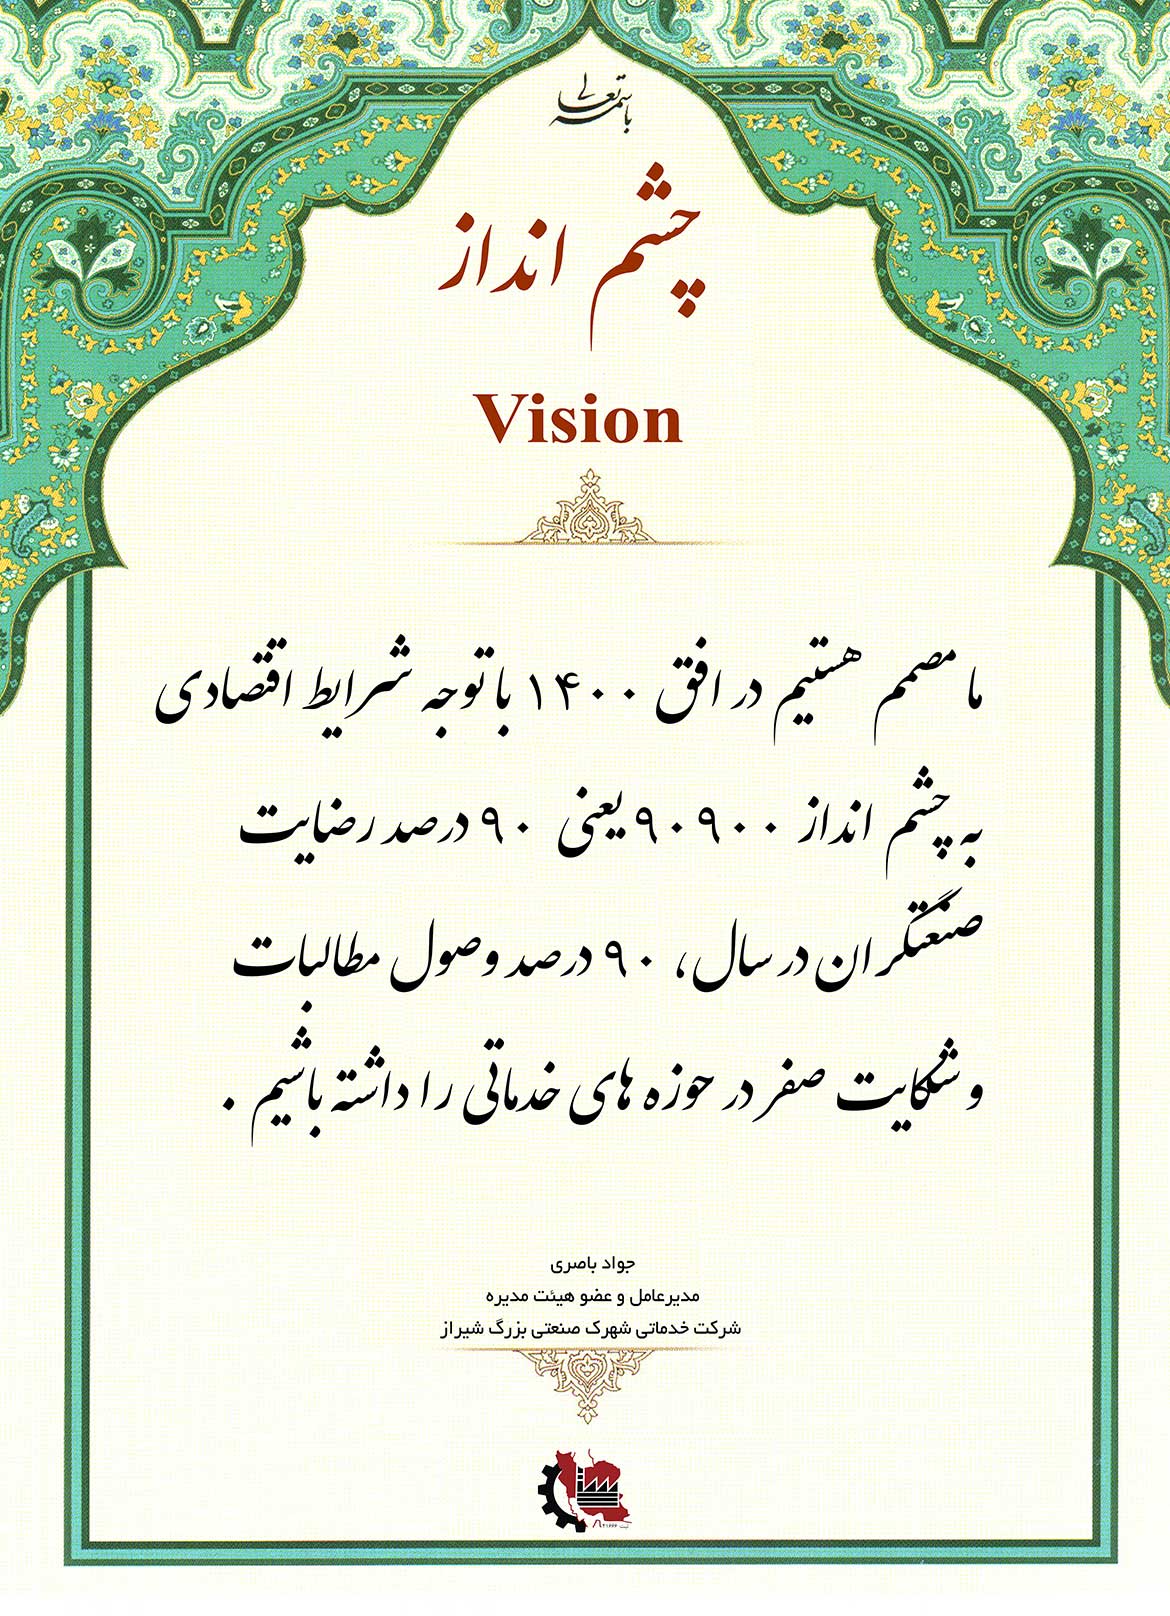 باسمه تعالی
چشم انداز
Vision
ما مصمم هستیم در افق ۱۴۰۰ با توجه شرایط اقتصادی
به چشم انداز ۹۰۹۰۰ یعنی ۹۰ درصد رضایت
صنعتگران در سال، ۹۰ درصد وصول مطالبات
و شکایت صفر در حوزه های خدماتی را داشته باشیم .
جواد باصری
مدیرعامل و عضو هیئت مدیره
شرکت خدماتی شهرک صنعتی بزرگ شیراز